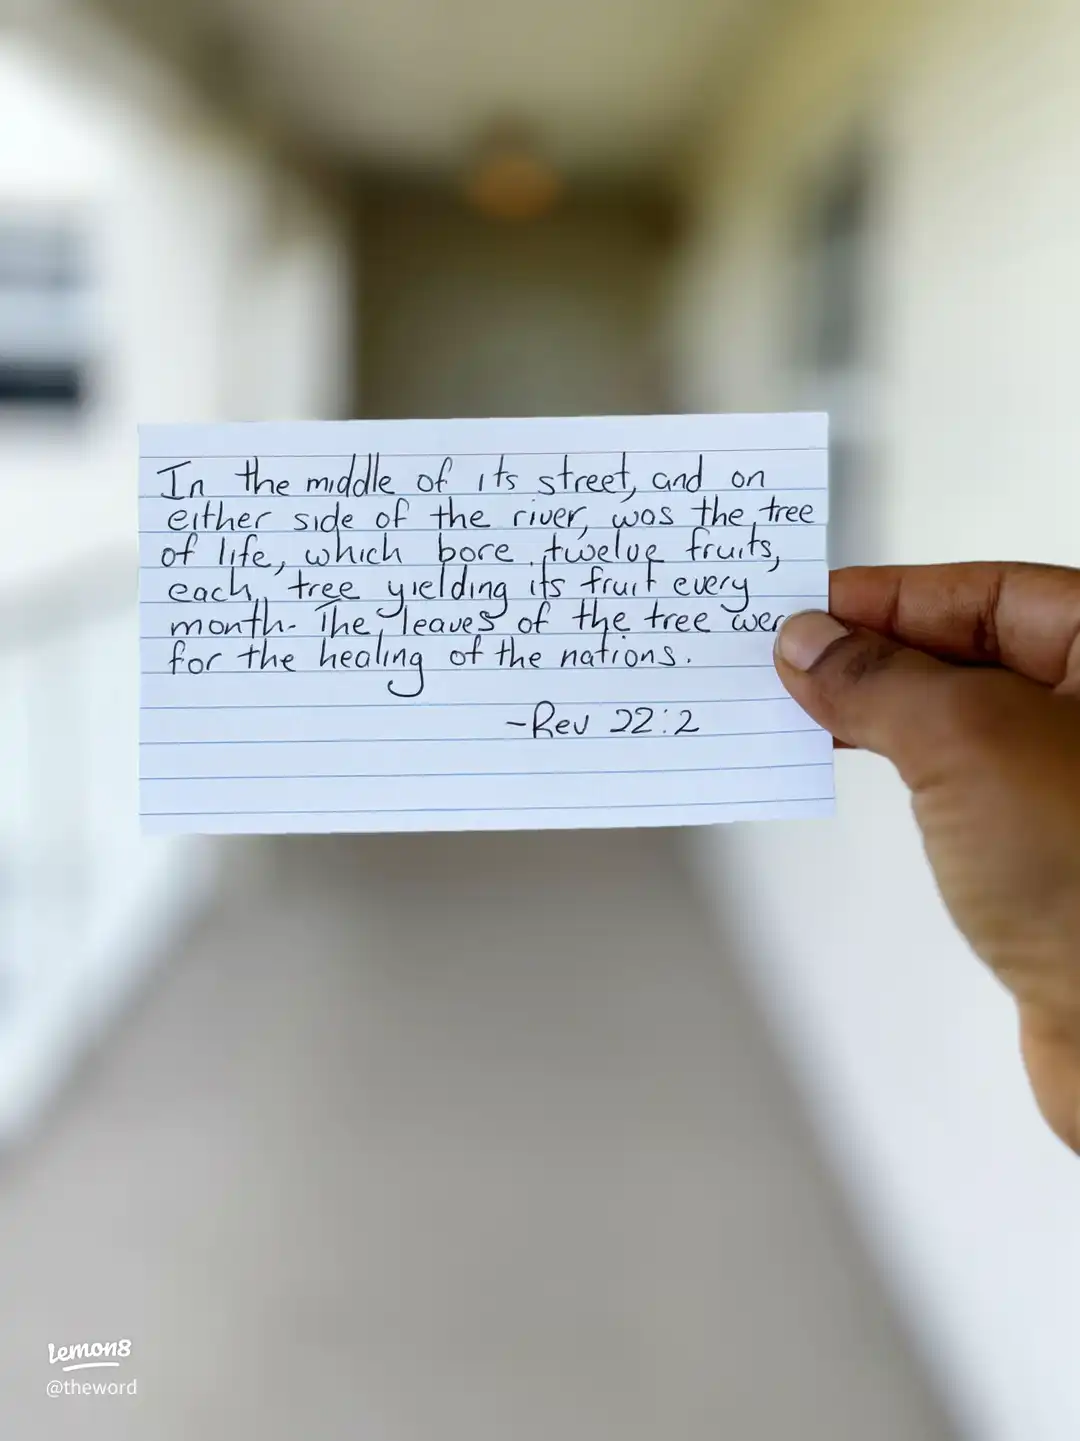 In the middle of its street, and on
either side of the river, was the tree
of life, which bore twelve fruits,
each tree yielding its fruit every
month. The leaves of the tree wer
for the healing of the nations.
-Rev 22:2
Lemon8
@theword